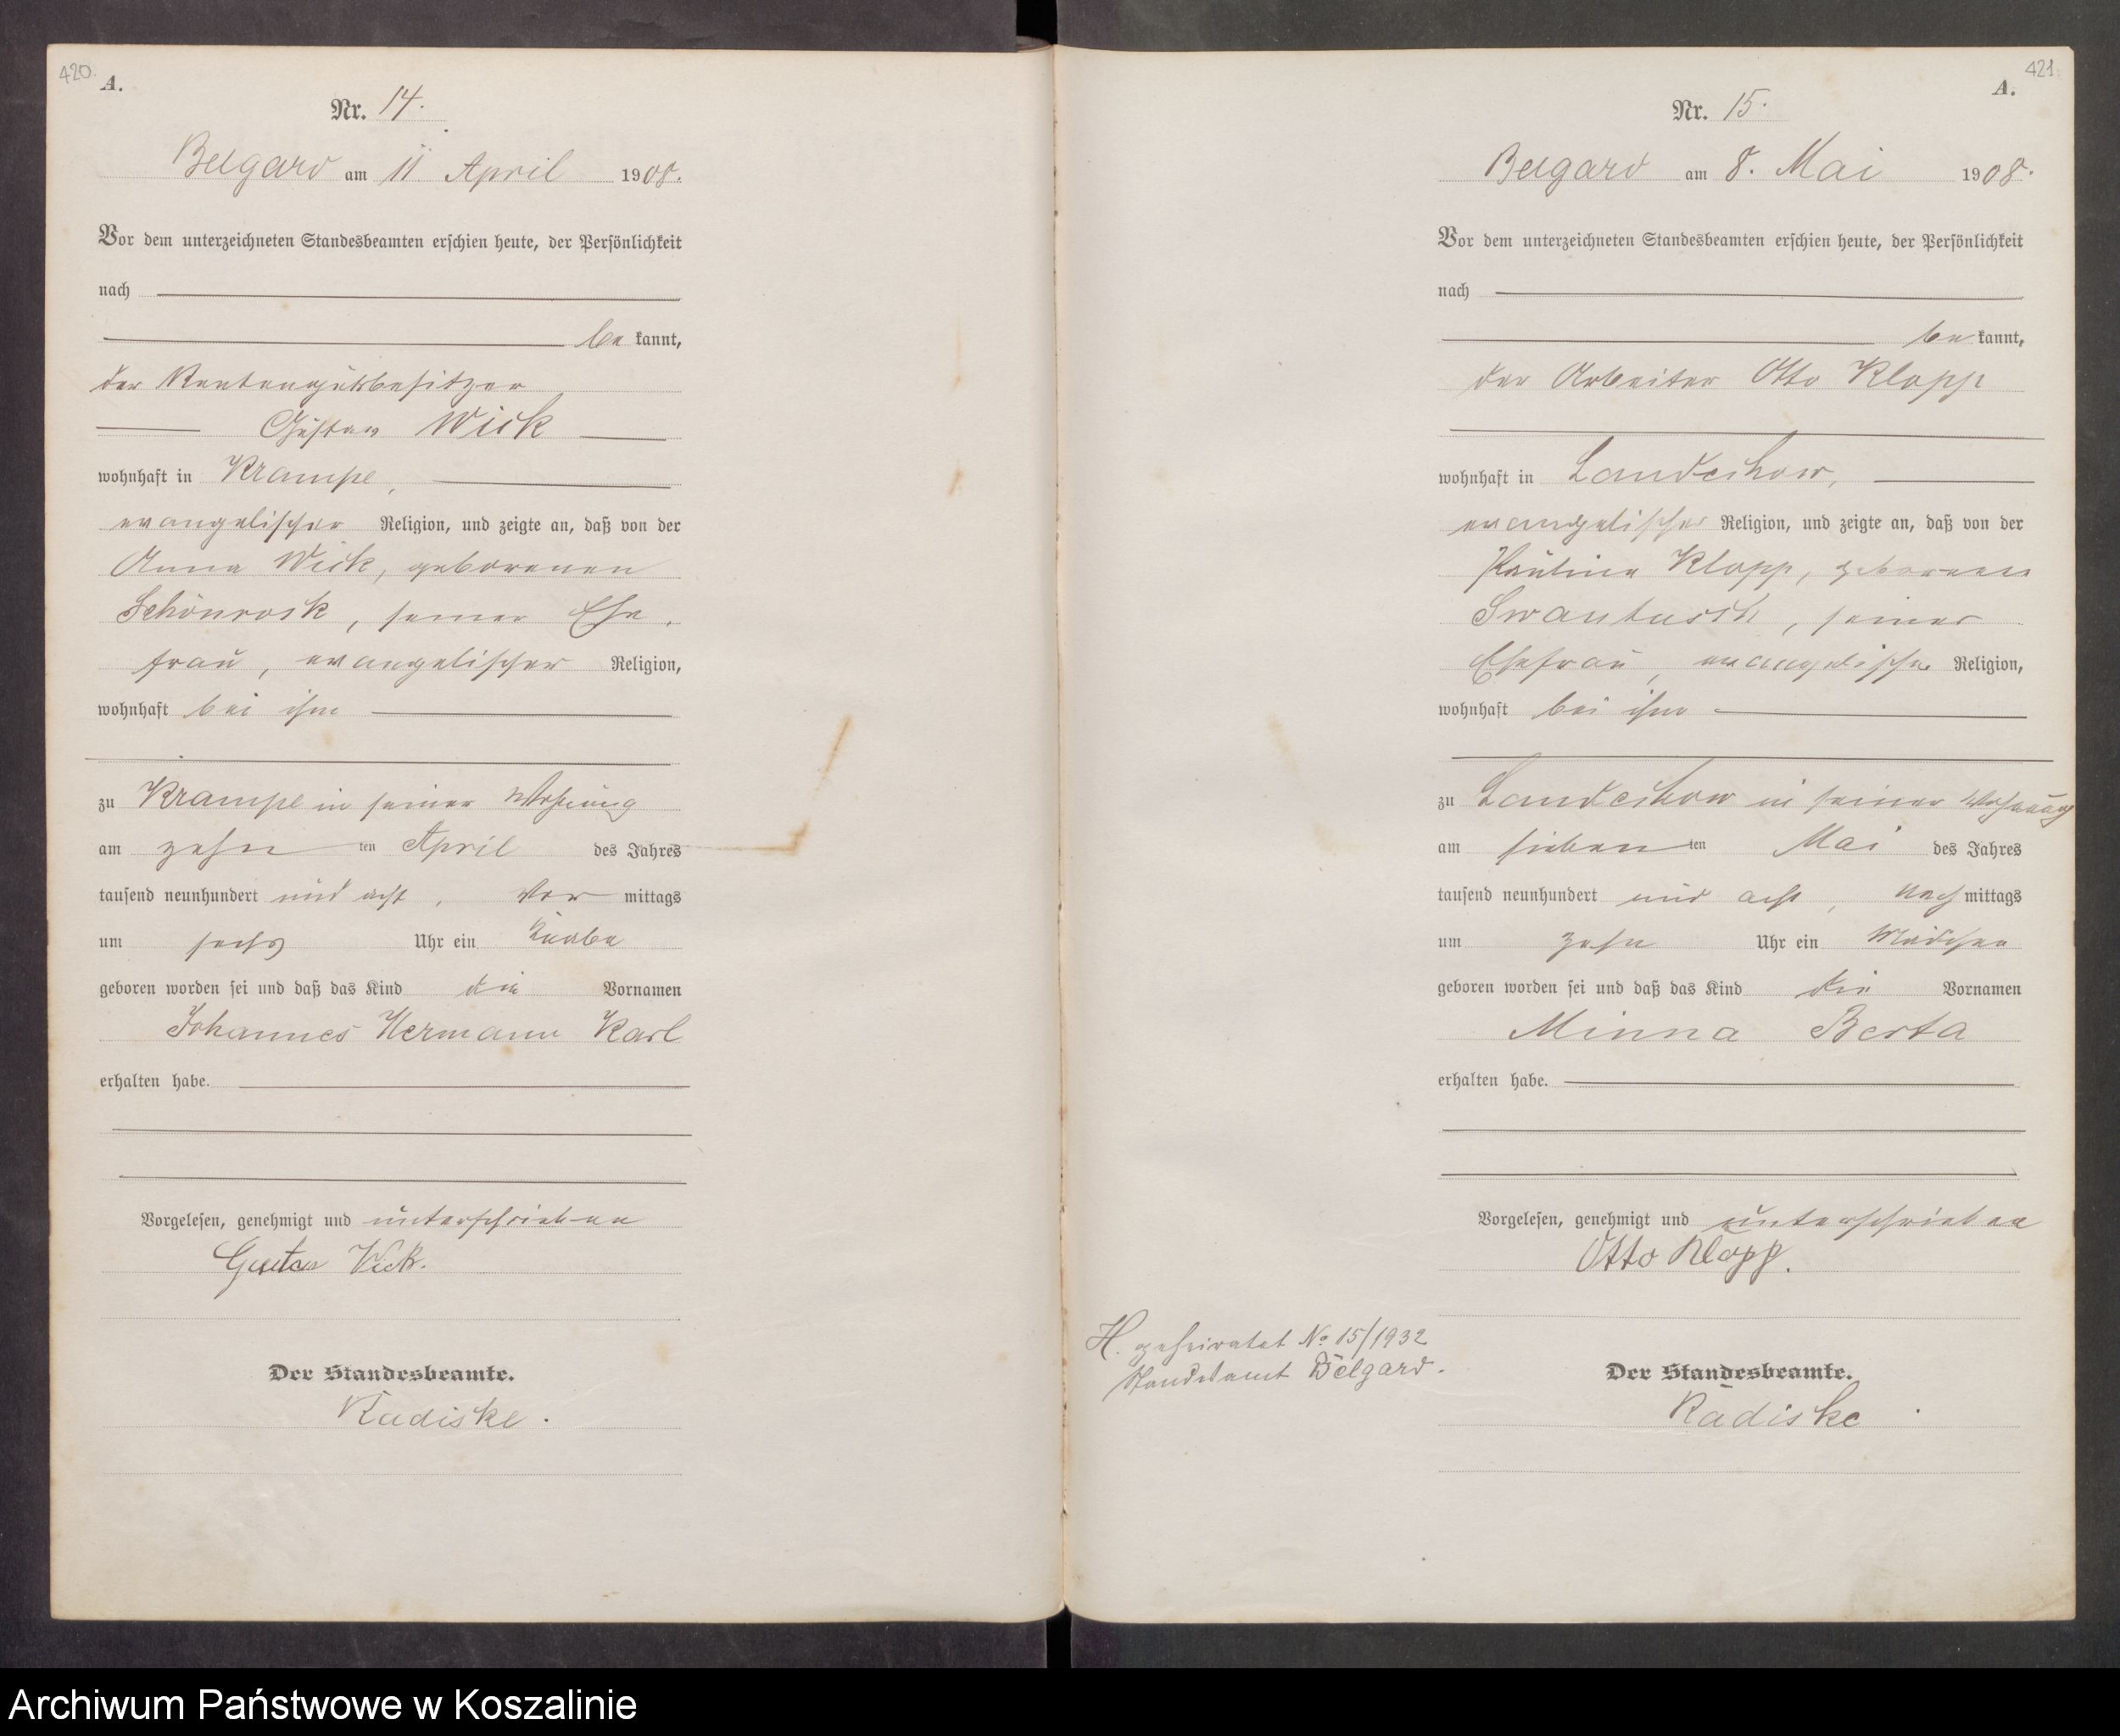 420.
A.
Nr. 14.
Belgard am 11 April 1908.
Vor dem unterzeichneten Standesbeamten erschien heute, der Persönlichkeit
nach
be kannt,
der Rentengutsbesitzer
Gustav Wick
wohnhaft in Krampe,
evangelischer Religion, und zeigte an, daß von der
Anna Wick, geborenen
Schönrock, seiner Ehe
frau, evangelischer Religion,
wohnhaft bei ihm
zu Krampe in seiner Wohnung
am zehn ten April des Jahres
tausend neunhundert und acht, Vor mittags
um sechs Uhr ein Knabe
geboren worden sei und daß das Kind die Vornamen
Johannes Hermann Karl
erhalten habe.
Vorgelesen, genehmigt und unterschrieben
Gustav Wick.
Der Standesbeamte.
Radiske.
421.
A.
Nr. 15.
Belgard am 8. Mai 1908.
Vor dem unterzeichneten Standesbeamten erschien heute, der Persönlichkeit
nach
be kannt,
der Arbeiter Otto Klopp
wohnhaft in
evangelischer Religion, und zeigte an, daß von der
Pauline Klopp, geborenen
seiner
Ehefrau, evangelischer Religion,
wohnhaft bei ihm
zu in seiner Wohnung
am sieben ten Mai des Jahres
tausend neunhundert und acht, Nach mittags
um zehn Uhr ein Mädchen
geboren worden sei und daß das Kind die Vornamen
Minna Berta
erhalten habe.
Vorgelesen, genehmigt und unterschrieben
Otto Klopp.
H. geheiratet No 15/1932
Standesamt Belgard.
Der Standesbeamte.
Radiske.
Archiwum Państwowe w Koszalinie